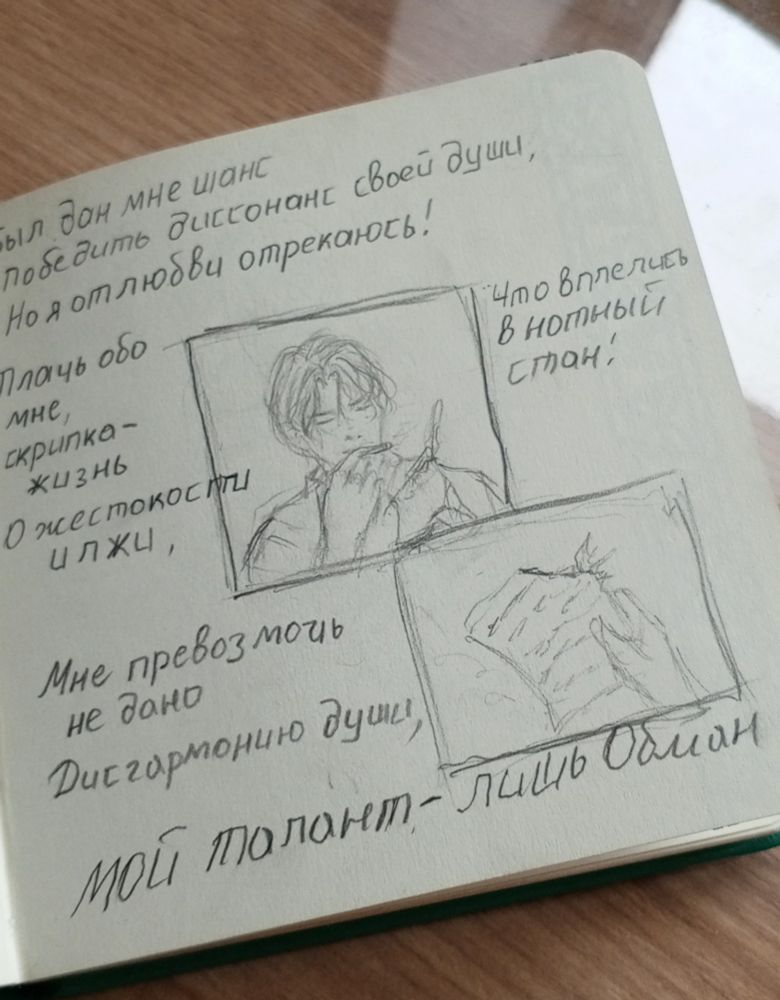 был дан мне шанс
победить диссонанс своей души,
Но я от любви отрекаюсь!
Плачь обо
мне,
скрипка-
жизнь
О жестокости
и лжи,
Что вплелись
в нотный
стан!
Мне превозмочь
не дано
Дисгармонию души,
Мой талант - лишь Обман